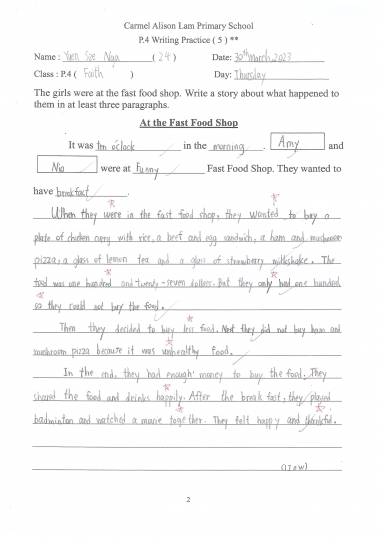 Carmel Alison Lam Primary School
P.4 Writing Practice ( 5 ) **
Name : Yuen Sze Nga ( 24 ) Date: 30th March, 2023
Class : P.4 ( Faith ) Day: Thursday
The girls were at the fast food shop. Write a story about what happened to
them in at least three paragraphs.
At the Fast Food Shop
It was ten o'clock in the morning . Amy and
Nia were at Funny Fast Food Shop. They wanted to
have breakfast .
When they were in the fast food shop, they wanted to buy a
plate of chicken curry with rice, a beef and egg sandwich, a ham and mushroom
pizza, a glass of lemon tea and a glass of strawberry milkshake. The
food was one hundred and twenty-seven dollars. But they only had one hundred
so they could not buy the food.
Then they decided to buy less food. they did not buy ham and
mushroom pizza because it was unhealthy food.
In the end, they had enough money to buy the food. They
shared the food and drinks happily. After the breakfast, they played
badminton and watched a movie together. They felt happy and thankful.
2